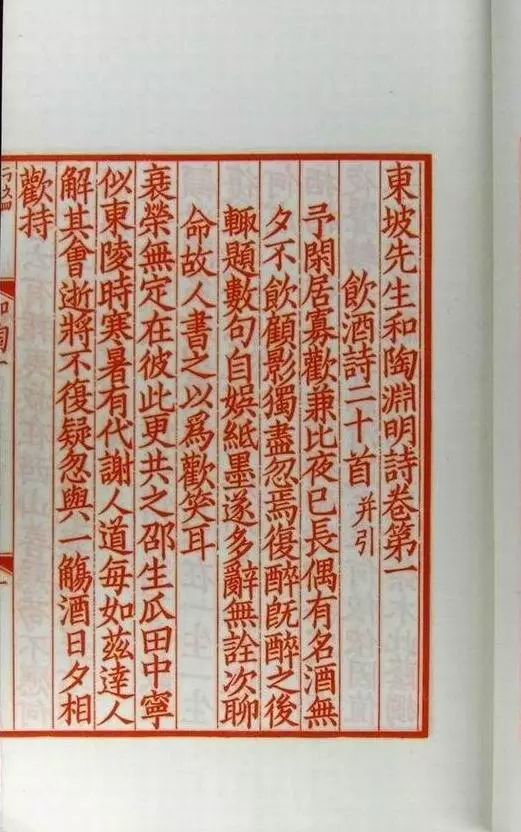 東坡先生和陶淵明詩卷第一
飲酒詩二十首 并引
予閑居寡歡兼比夜已長偶有名酒無
夕不飲顧影獨盡忽焉復醉旣醉之後
輙題數句自娛紙墨遂多辭無詮次聊
命故人書之以爲歡笑耳
衰榮無定在彼此更共之邵生瓜田中寧
似東陵時寒暑有代謝人道每如兹達人
解其會逝將不復疑忽與一觴酒日夕相
歡持